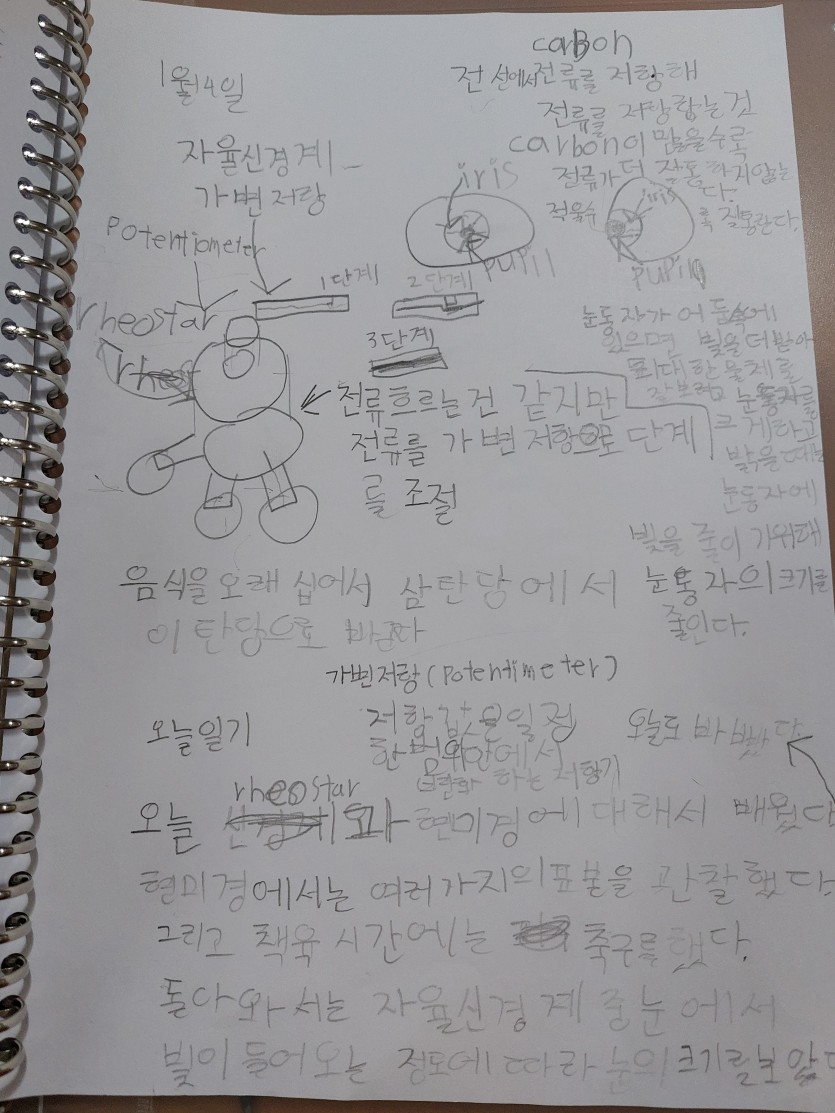 1월4일
자율신경계
가변저항
potentiometer
rheostar
carbon
전선에서전류를 저항해
전류를 저항합는것
carbon이 많을수로
전류가더 잘통하지않는
다.
적을수
록 잘통한다.
iris
pupil
iris
pupil
1단계
2단계
3단계
전류흐르는건 같지만
전류를 가변저항으로 단계
를 조절
눈동자가 어둠속에
있으면 빛을더받아
최대한물체를
잘보려고 눈동자를
크게하고
밝을때는
눈동자에
빛을 줄이기위해
눈동자의크기를
줄인다.
음식을오래 십어서 삼탄당에서
이탄당으로 바꾼다
가변저항(potentimeter)
저항값을일정
한범위안에서
변화하는저항기
오늘일기
오늘도 바빴다
오늘 rheostar 과 현미경에대해서 배웠다
현미경에서는 여러가지의표본을 관찰했다.
그리고 책육시간에는 축구를했다.
돌아와서는 자율신경계중눈에서
빛이들어오는 정도에따라눈의크기를보았다